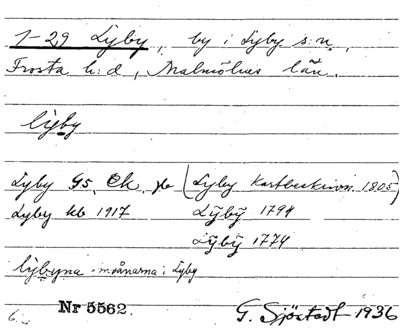 1-29 Lyby, by i Lyby sn.,
Frosta h:d, Malmöhus län.
lyby
Lyby GS, Ek, (Lyby Kartbeskrivn. 1805)
Lyby kb 1917 Lÿbÿ 1794
Lÿbÿ 1774
lybyna = invånarna i Lyby
6. Nr 5562. G. Sjöstedt 1936